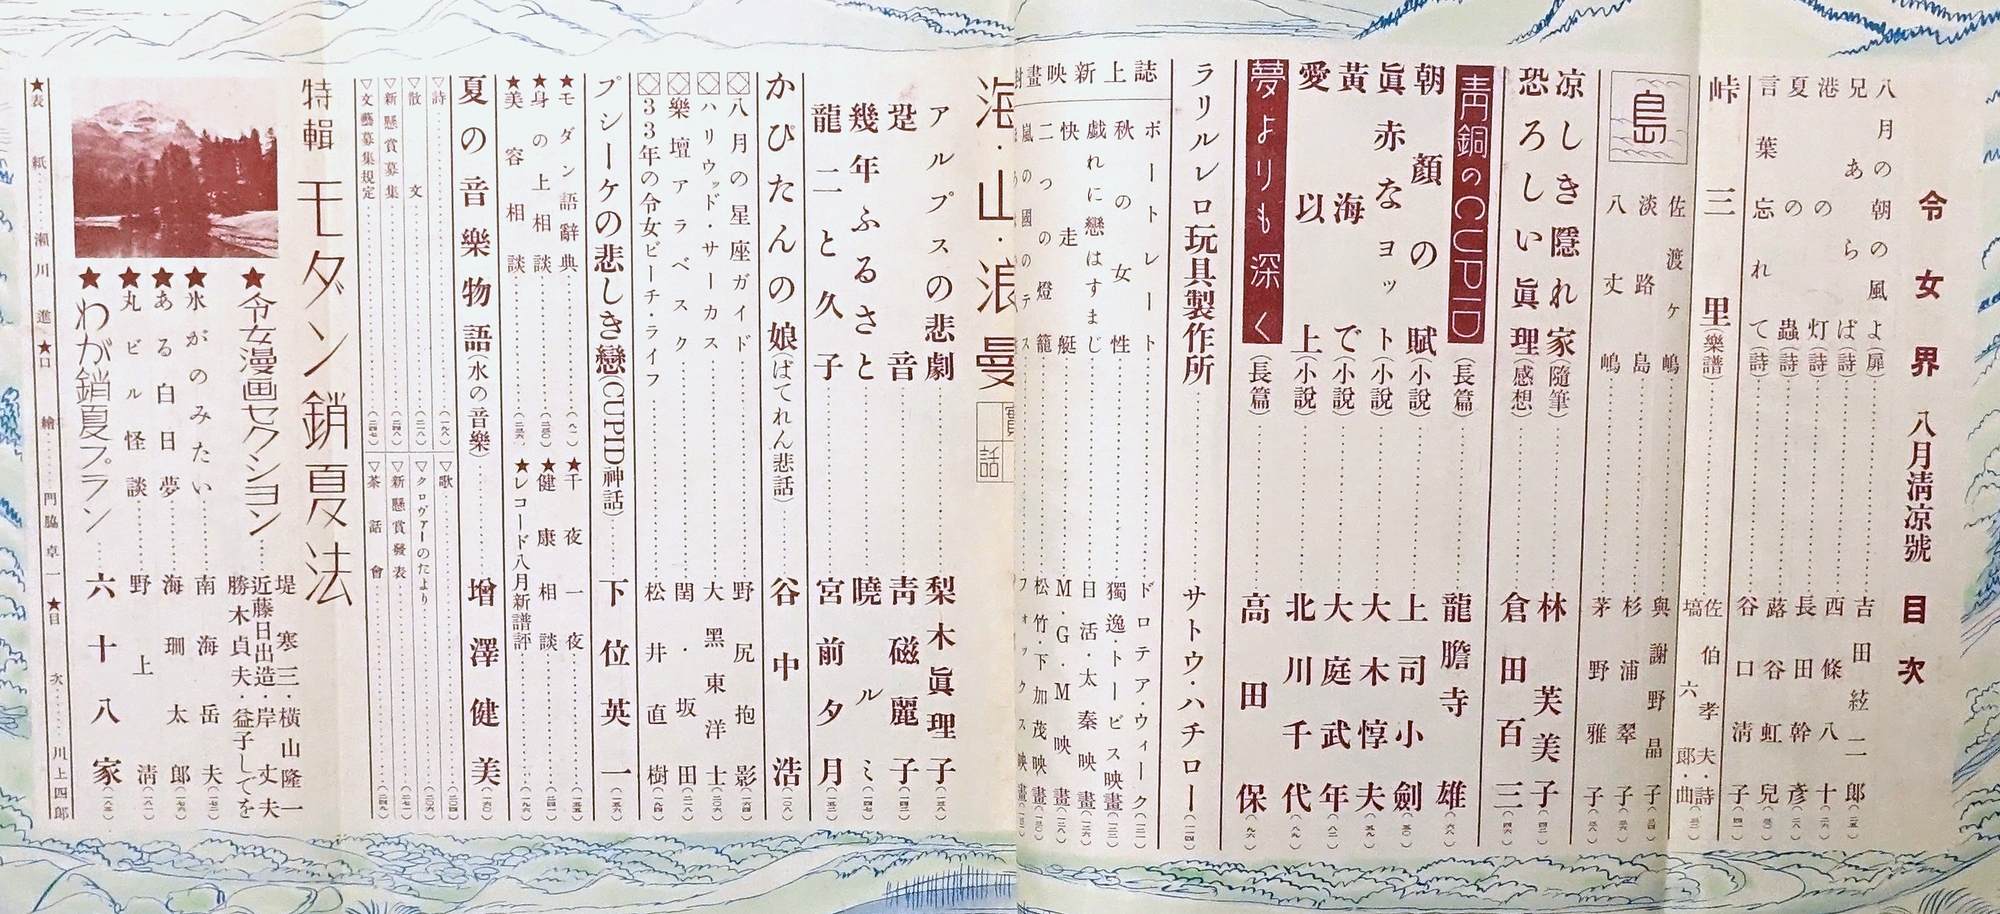 令女界 八月淸凉號 目次
八月の朝の風よ(扉)……吉田絃二郎
兄あらば(詩)……西條八十
港の灯(詩)……長田幹彥
夏の蟲(詩)……蕗谷虹兒
言葉忘れて(詩)……谷口淸子
峠三里(樂譜)……佐伯孝夫・詩 塙六郎・曲
島
佐渡ヶ嶋……與謝野晶子
淡路島……杉浦翠子
八丈嶋……茅野雅子
凉しき隱れ家(隨筆)……林芙美子
恐ろしい眞理(感想)……倉田百三
靑銅のCUPID(長篇)……龍膽寺雄
朝顏の賦(小說)……上司小劍
眞赤なヨット(小說)……大木惇夫
黃海で(小說)……大庭武年
愛以上(小說)……北川千代
夢よりも深く(長篇)……高田保
ラリルレロ玩具製作所……サトウ・ハチロー
誌上新映畫
ボートレート……ドロテア・ウィーク
秋の女性……獨逸トービス映畫
戯れに戀はすまじ……日活・太秦映畫
快走艇……M・G・M映畫
二つの燈籠……松竹・下加茂映畫
嵐の國のテス……フォックス映畫
海・山・浪曼
實話
アルプスの悲劇……梨木眞理子
跫音……靑磁麗子
幾年ふるさと……曉ルミ
龍二と久子……宮前夕月
かぴたんの娘(ばてれん悲話)……谷中浩
八月の星座ガイド……野尻抱影
ハリウッド・サーカス……大黑東洋士
樂壇アラベスク……閏・坂田
33年の令女ビーチ・ライフ……松井直樹
プシーケの悲しき戀(CUPID神話)……下位英一
★モダン語辭典
★千一夜
★身の上相談
★健康相談
★美容相談
★レコード八月新譜評
夏の音樂物語(水の音樂)……增澤健美
▽詩
▽歌
▽散文
▽クロヴァーのたより
▽新懸賞募集
▽新懸賞發表
▽文藝募集規定
▽茶話會
特輯 モダン銷夏法
★令女漫画セクション……堤寒三・橫山隆一 近藤日出造・岸丈夫 勝木貞夫・益子しでを
★氷がのみたい……南海岳夫
★ある白日夢……海珊太郎
★丸ビル怪談……野上淸
★わが銷夏プラン……六十八家
★表紙……瀨川進 ★口繪……門脇卓一 ★目次……川上四郎